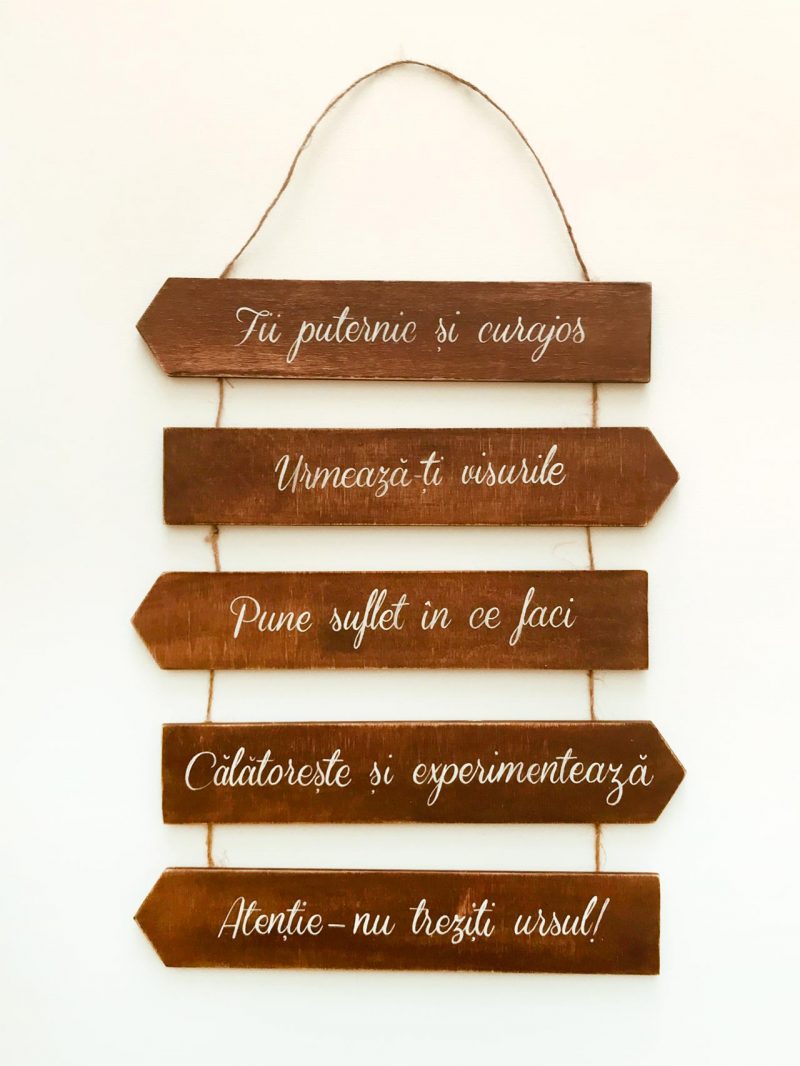 Fii puternic și curajos
Urmează-ți visurile
Pune suflet în ce faci
Călătorește și experimentează
Atenție - nu treziți ursul!